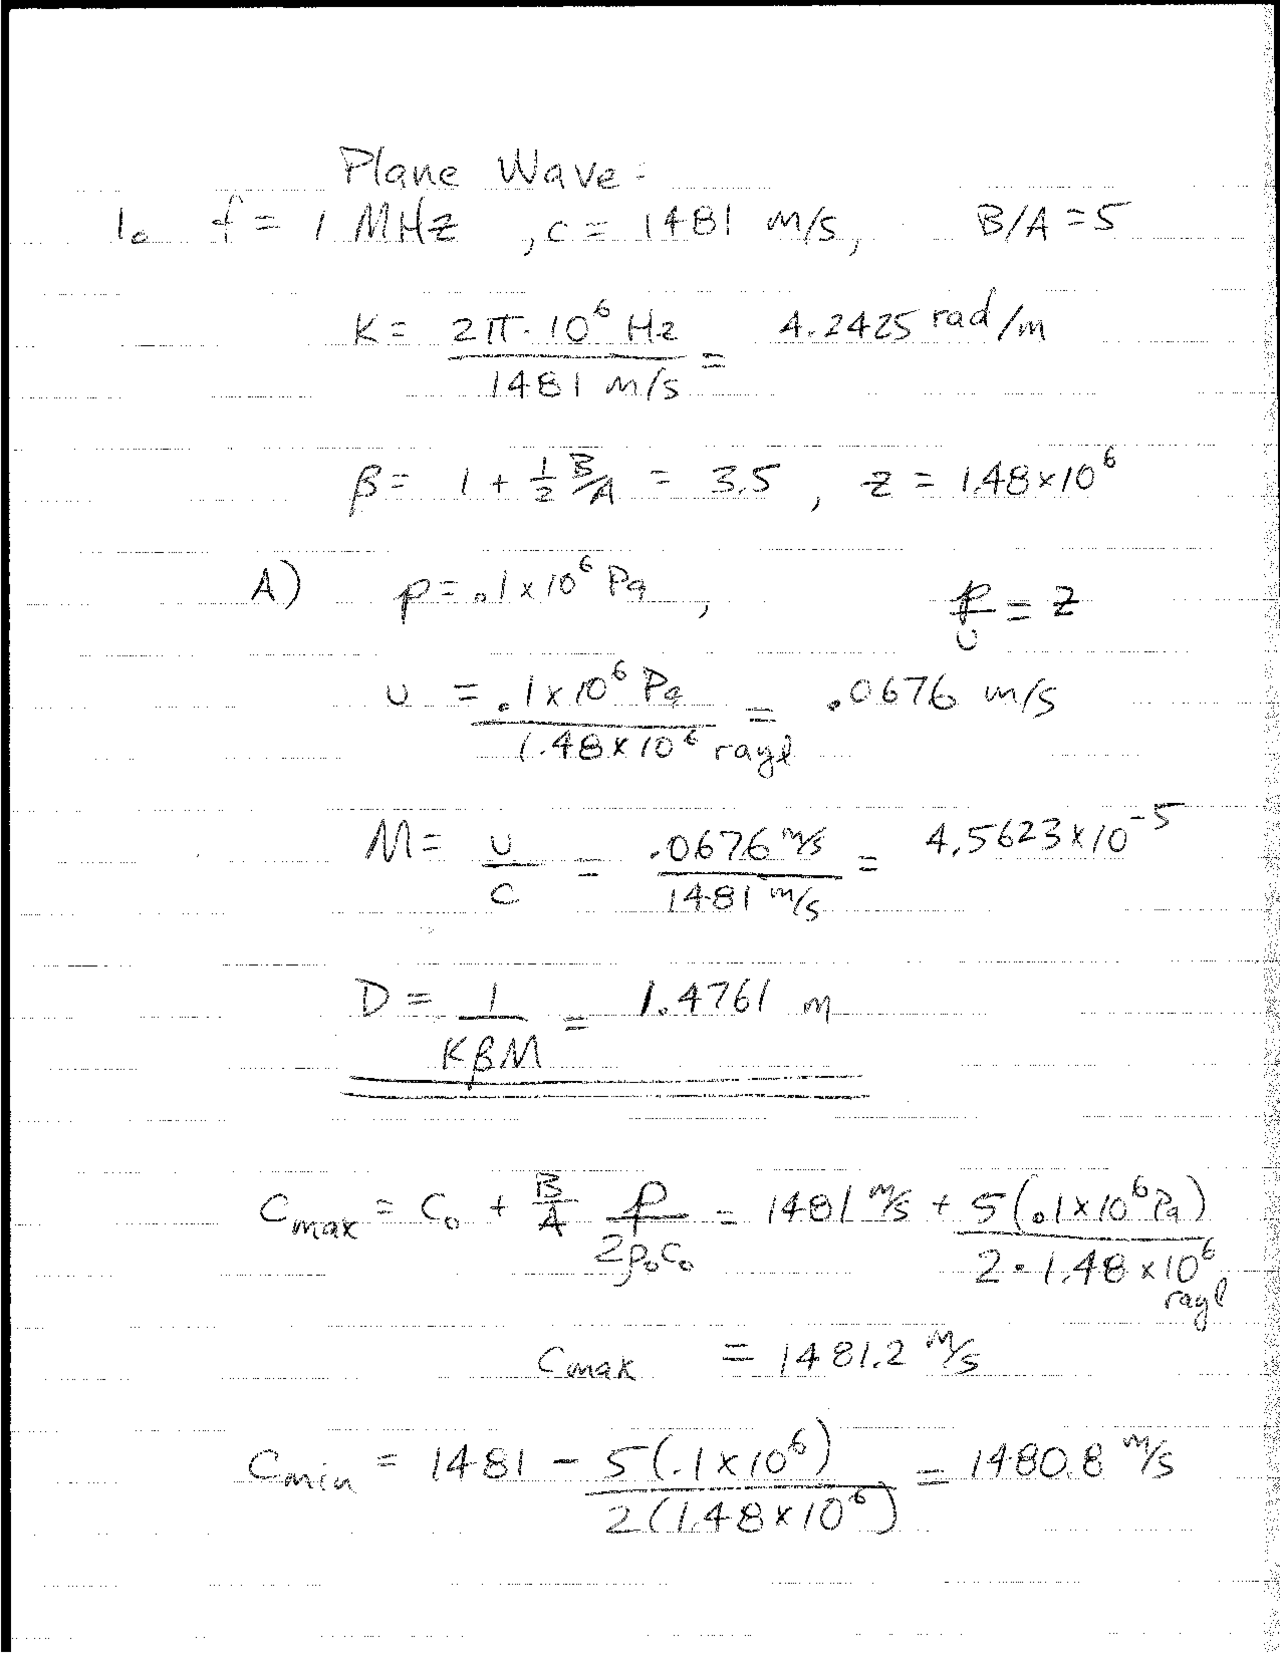 Plane Wave:
1. f = 1 MHz , c = 1481 m/s, B/A = 5
K = 2π·10⁶ Hz / 1481 m/s = 4.2425 rad/m
β = 1 + 1/2 B/A = 3.5 , z = 1.48x10⁶
A) p = .1x10⁶ Pa , p/u = z
u = .1x10⁶ Pa / 1.48x10⁶ rayl = .0676 m/s
M = u/c = .0676 m/s / 1481 m/s = 4.5623x10⁻⁵
D = 1/KβM = 1.4761 m
Cmax = C₀ + B/A p/2ρ₀C₀ = 1481 m/s + 5(.1x10⁶ Pa) / 2·1.48x10⁶ rayl
Cmax = 1481.2 m/s
Cmin = 1481 - 5(.1x10⁶) / 2(1.48x10⁶) = 1480.8 m/s